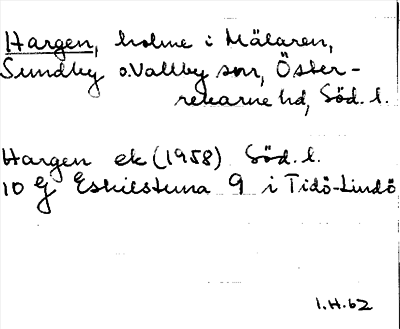 Hargen, holme i Mälaren,
Sundby o. Vallby snr, Öster-
rekarne hd, Söd. l.
Hargen ek (1958) Söd. l.
10 G Eskilstuna 9 i Tidö-Lindö
1.H.62